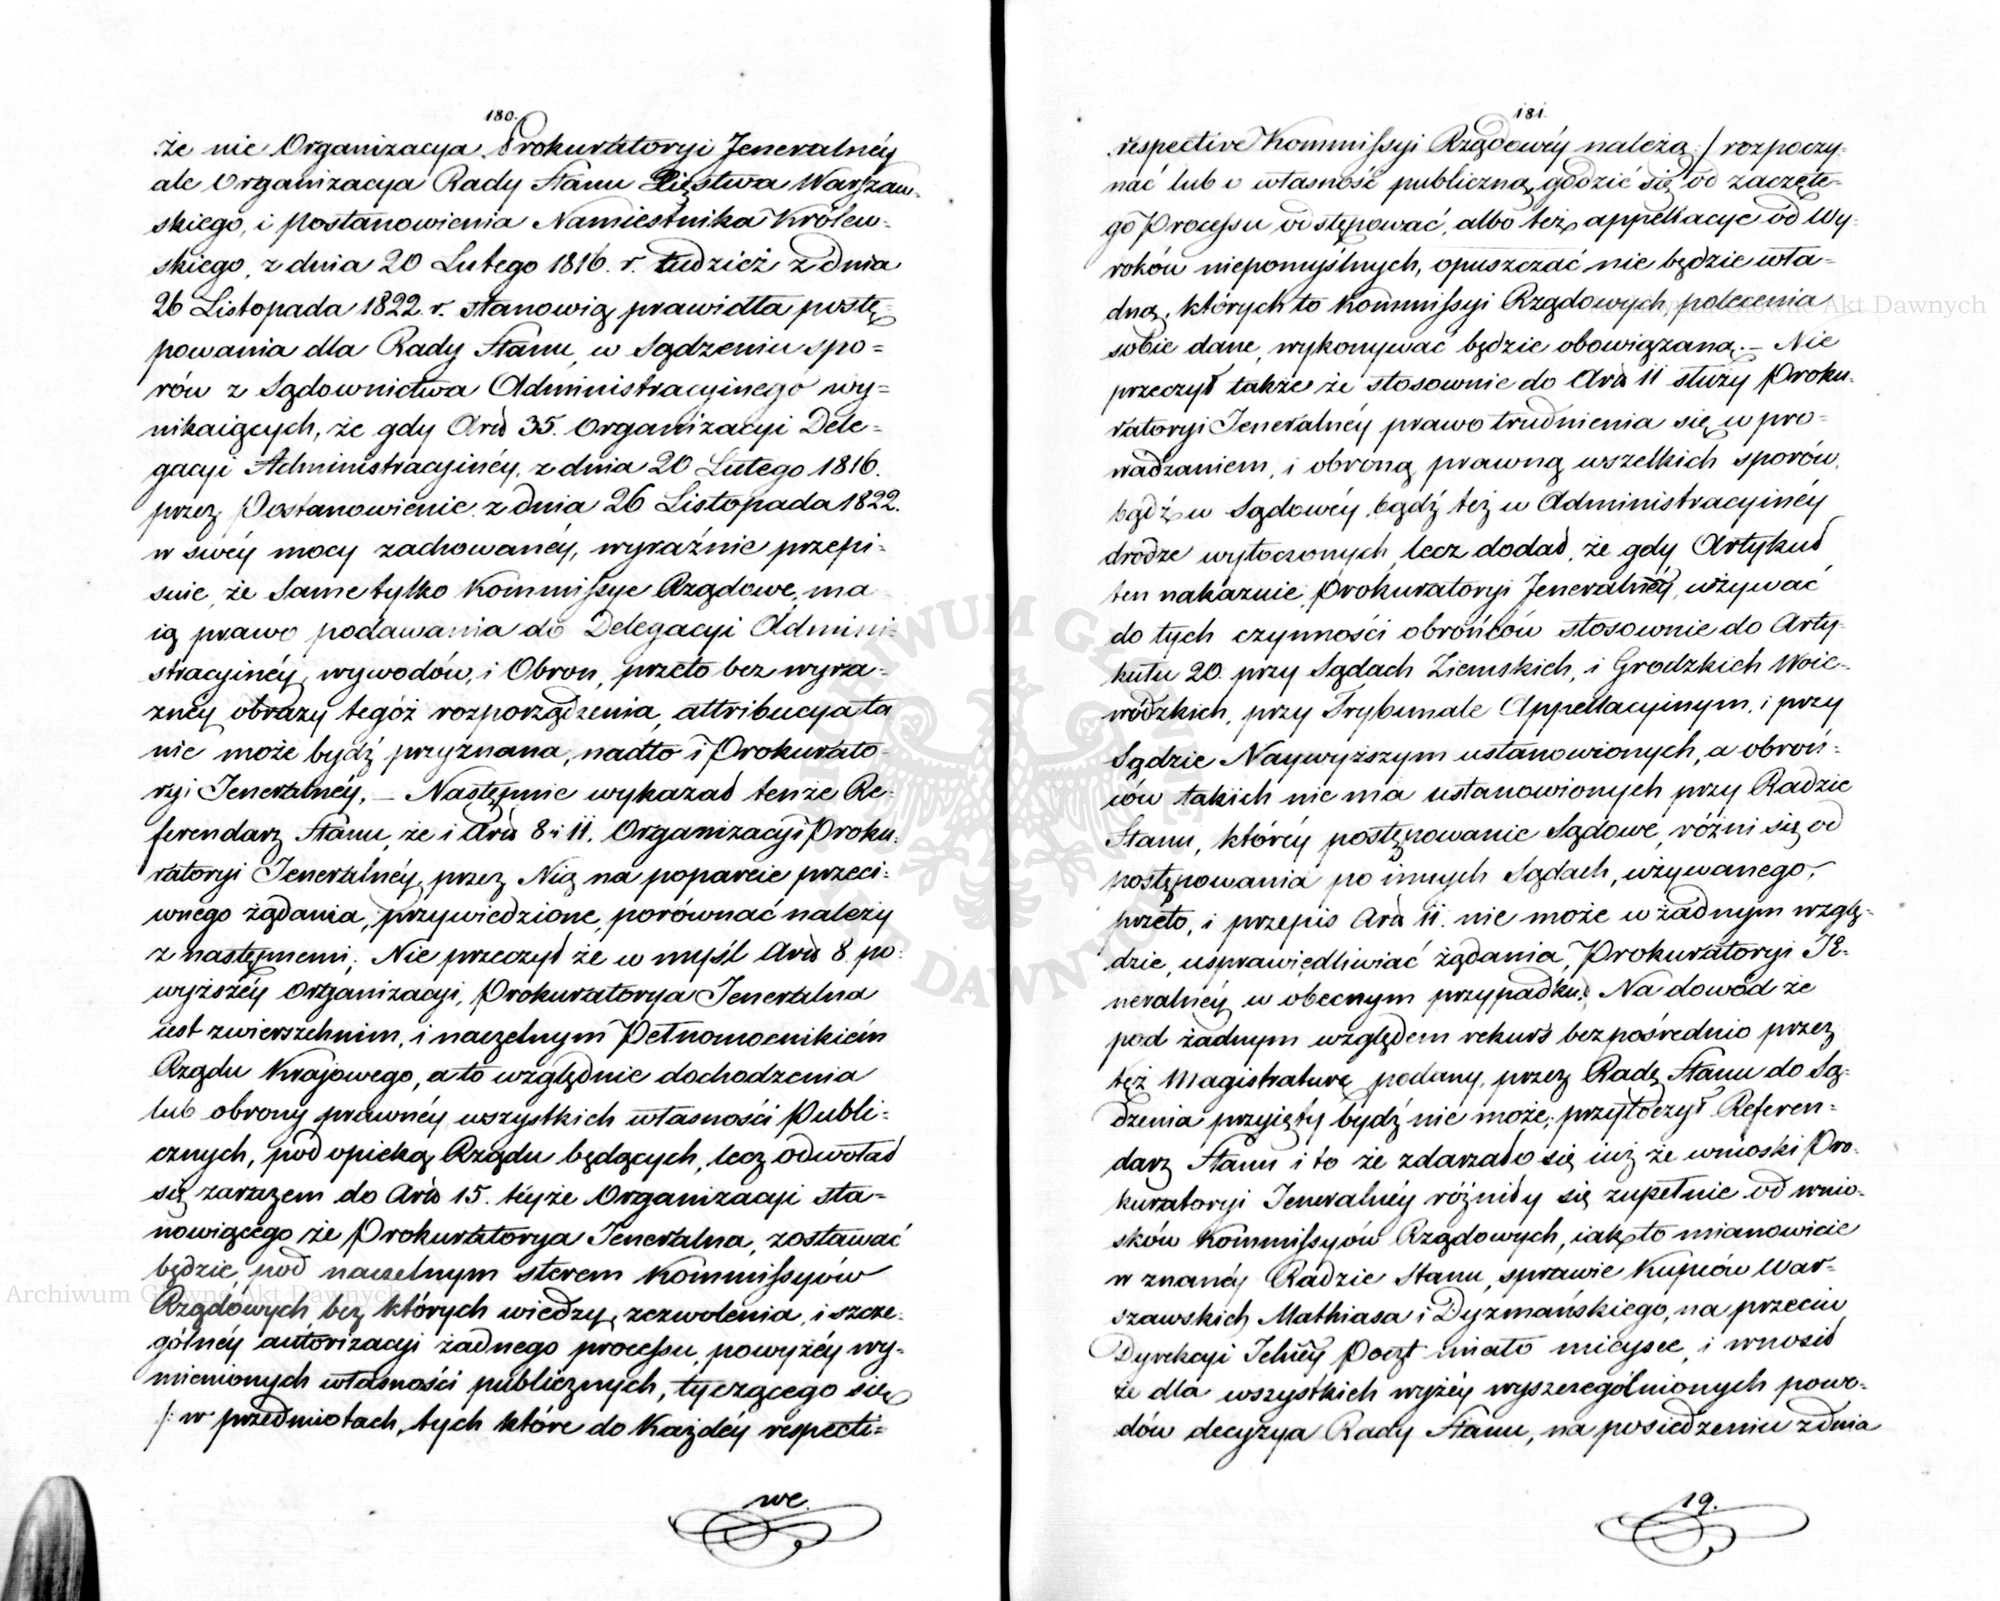 180.
że nie Organizacya Prokuratoryi Jeneralnéy
ale Organizacya Rady Stanu Xięstwa Warszaw-
skiego, i postanowienia Namiestnika Królew-
skiego, z dnia 20 Lutego 1816. r. tudzież z dnia
26 Listopada 1822. r. stanowią prawidła postę-
powania dla Rady Stanu, w Sądzeniu spo=
rów z Sądownictwa Administracyinego wy=
nikaiących, że gdy Art 35. Organizacyi Dele=
gacyi Administracyinéy, z dnia 20 Lutego 1816.
przez Postanowienie z dnia 26 Listopada 1822.
w swéy mocy zachowanéy, wyraźnie przepi-
suie, że Same tylko Kommissye Rządowe, ma-
ią prawo podawania do Delegacyi Admini-
stracyinéy, wywodów, i Obron, przeto bez wyra-
znéy obrazy tegóż rozporządzenia, attribucya ta
nie może bydź przyznana, nadto i Prokurato-
ryi Jeneralnéy. — Następnie wykazał tenże Re-
ferendarz Stanu, że i Art 8 i 11. Organizacyi Proku-
ratoryi Jeneralnéy, przez Nią na poparcie przeci-
wnego żądania, przywiedzione, porównać należy
z następnemi; Nie przeczył że w myśl Art 8. po-
wyższéy Organizacyi, Prokuratorya Jeneralna
iest zwierzchnim, i naczelnym Pełnomocnikiem
Rządu Krajowego, a to względnie dochodzenia
lub obrony prawnéy wszystkich własności Publi-
cznych, pod opieką Rządu będących, lecz odwołał
się zarazem do Art 15. téyże Organizacyi sta=
nowiącego że Prokuratorya Jeneralna, zostawać
będzie, pod naczelnym sterem Kommissyów
Rządowych, bez których wiedzy, zezwolenia, i szcze-
gólnéy autorizacyi żadnego processu, powyżéy wy-
mienionych własności publicznych, tyczącego się
/: w przedmiotach, tych które do Każdéy respecti=
we.
181.
respective Kommissyi Rządowéy należą :/ rozpoczy-
nać lub o własność publiczną, godzić się, od zaczęte-
go Processu odstępować, albo też appellacye od Wy-
roków niepomyślnych, opuszczać nie będzie wła-
dną, których to Kommissyi Rządowych, polecenia
sobie dane, wykonywać będzie obowiązaną. — Nie
przeczył także że stosownie do Art 11 służy Proku-
ratoryi Jeneralnéy prawo trudnienia się w pro-
wadzaniem, i obroną prawną wszelkich sporów,
bądź w Sądowéy, bądź też w Administracyinéy
drodze wytoczonych, lecz dodał, że gdy Artykuł
ten nakazuie, Prokuratoryi Jeneralnéy, używać
do tych czynności obrońców stosownie do Arty-
kułu 20. przy Sądach Ziemskich, i Grodzkich Woie-
wódzkich, przy Trybunale Appellacyinym, i przy
Sądzie Naywyższym ustanowionych, a obroń-
ców takich nie ma ustanowionych przy Radzie
Stanu, któréy postępowanie Sądowe, różni się od
postępowania po innych Sądach, używanego,
przeto, i przepis Art 11. nie może w żadnym wzglę-
dzie, usprawiedliwiać żądania, Prokuratoryi Je-
neralnéy w obecnym przypadku. Na dowód że
pod żadnym względem rekurs bezpośrednio przez
też Magistraturę podany, przez Radę Stanu do Są-
dzenia przyięty bydź nie może; przytoczył Referen-
darz Stanu i to że zdarzało się iuż że wnioski Pro-
kuratoryi Jeneralnéy różniły się zupełnie od wnio-
sków Kommissyów Rządowych, iak to mianowicie
w znanéy Radzie Stanu, sprawie Kupców War-
szawskich Mathiasa i Dyzmańskiego, na przeciw
Dyrekcyi Jelnéy Poczt miało mieysce, i wnosił
że dla wszystkich wyżéy wyszczególnionych powo-
dów decyzya Rady Stanu, na posiedzeniu z dnia
19.
Archiwum Główne Akt Dawnych
Archiwum Główne Akt Dawnych
ARCHIWUM GŁÓWNE AKT DAWNYCH